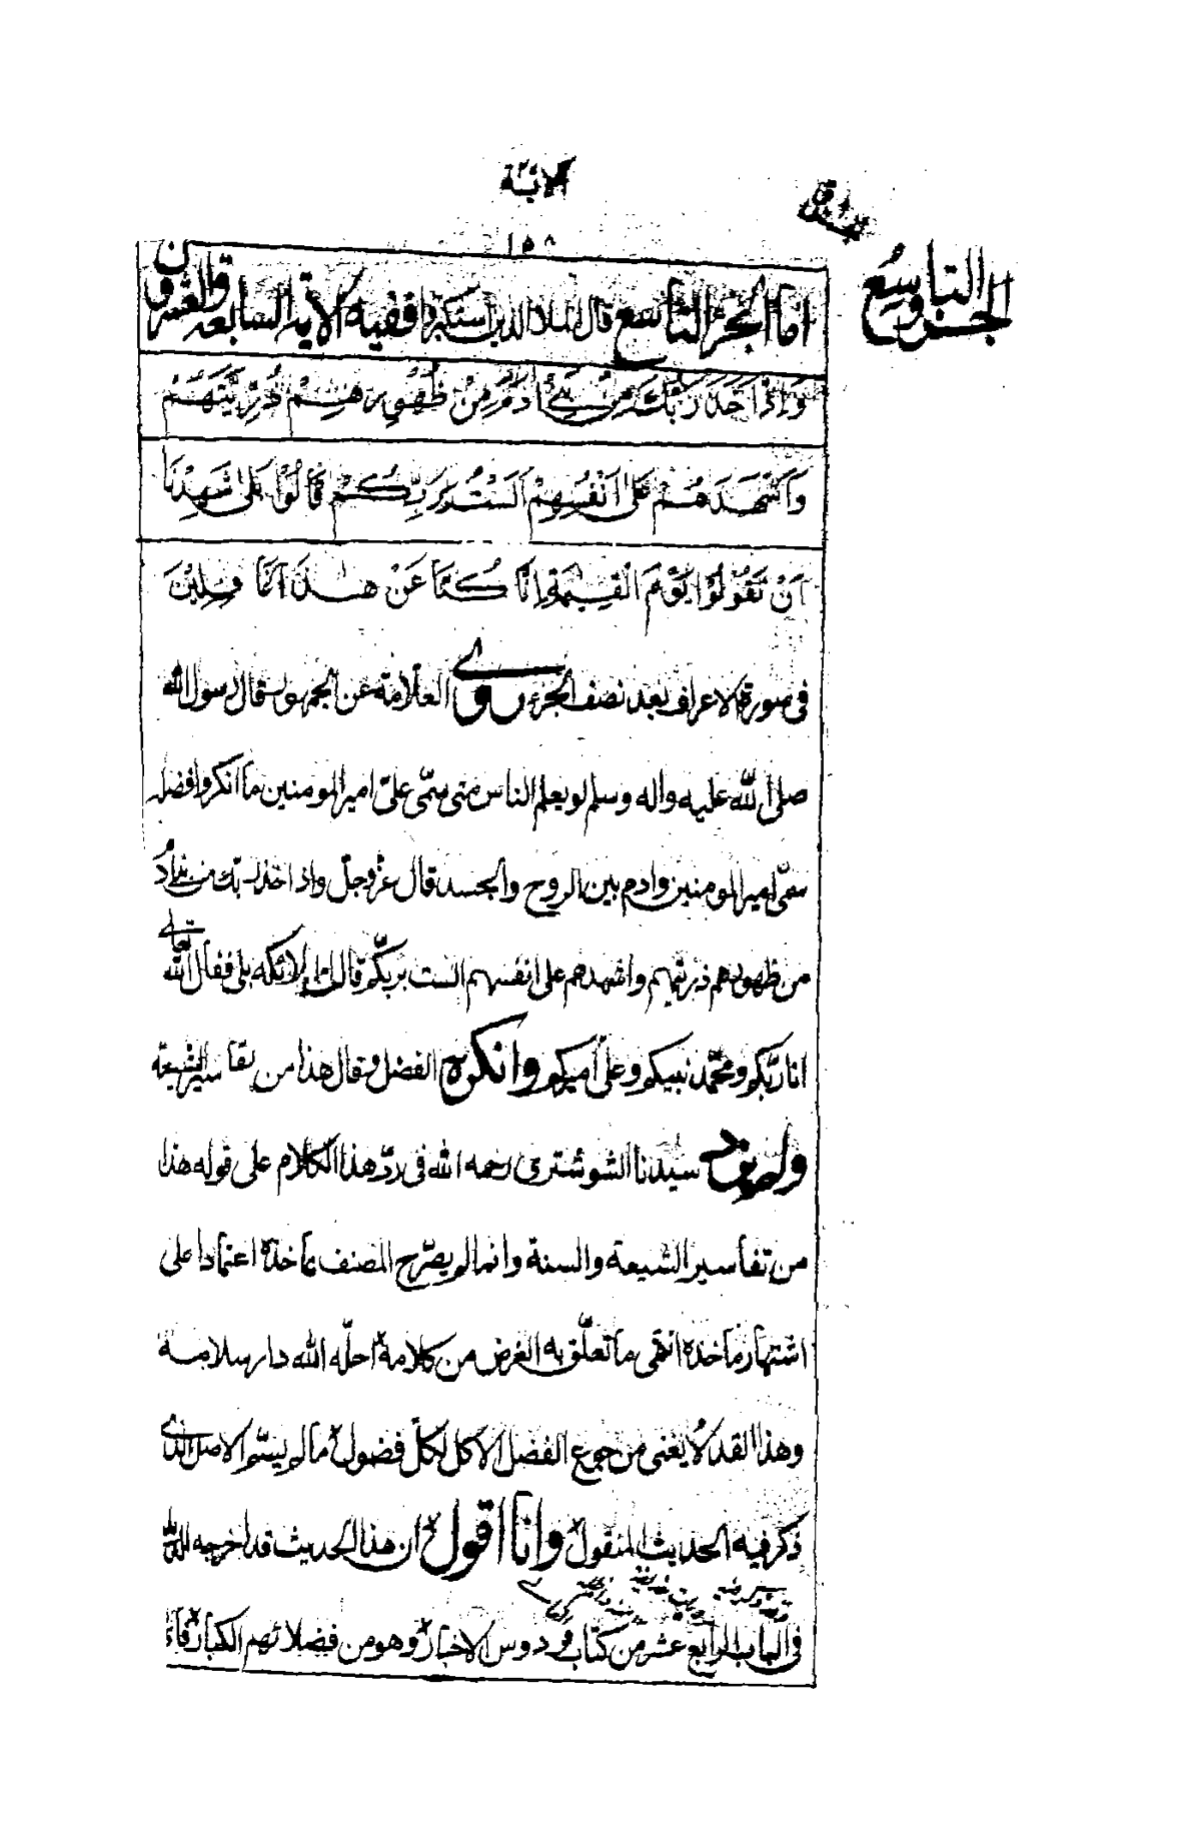 الاية
١٥٨
الجزء التاسع
اما الجزء التاسع قال الملا الذين استكبروا ففيه الاية السابعة والعشرون
وَاِذْ اَخَذَ رَبُّكَ مِنْ بَنِىٓ اٰدَمَ مِنْ ظُهُوْرِهِمْ ذُرِّيَّتَهُمْ
وَاَشْهَدَهُمْ عَلٰٓى اَنْفُسِهِمْ اَلَسْتُ بِرَبِّكُمْ قَالُوْا بَلٰى شَهِدْنَا
اَنْ تَقُوْلُوْا يَوْمَ الْقِيٰمَةِ اِنَّا كُنَّا عَنْ هٰذَا غَافِلِيْنَ
فى سورة الاعراف بعد نصف الجزء روى العلامة عن الجمهور قال رسول الله
صلى الله عليه واله وسلم لو يعلم الناس متى سمّى علىّ امير المومنين ما انكروا فضله
سمّى امير المومنين وادم بين الروح والجسد قال عزّ وجلّ واذ اخذ ربك من بنى ادم
من ظهورهم ذريتهم واشهدهم على انفسهم الست بربكم قالت الملائكه بلى فقال الله تعالى
انا ربّكم ومحمّد نبيكم وعلىّ اميركم وانكره الفضل وقال هذا من تفاسير الشيعة
ولم يزد سيّدنا الشوشترى رحمه الله فى ردّ هذا الكلام على قوله هذا
من تفاسير الشيعة والسنة وانما لم يصرّح المصنف بماخذه اعتمادا على
اشتهار ماخذه انتهى ما تعلّق به الغرض من كلامه احلّه الله دار سلامه
وهذا القدر لا يغنى من جوع الفضل الاكل لكلّ فضول ما لم يسّم الاصل الذى
ذكر فيه الحديث المنقول وانا اقول ان هذا الحديث قد اخرجه الديلمى
فى الباب الرابع عشر من كتاب فردوس الاخبار وهو من فضلائهم الكبار